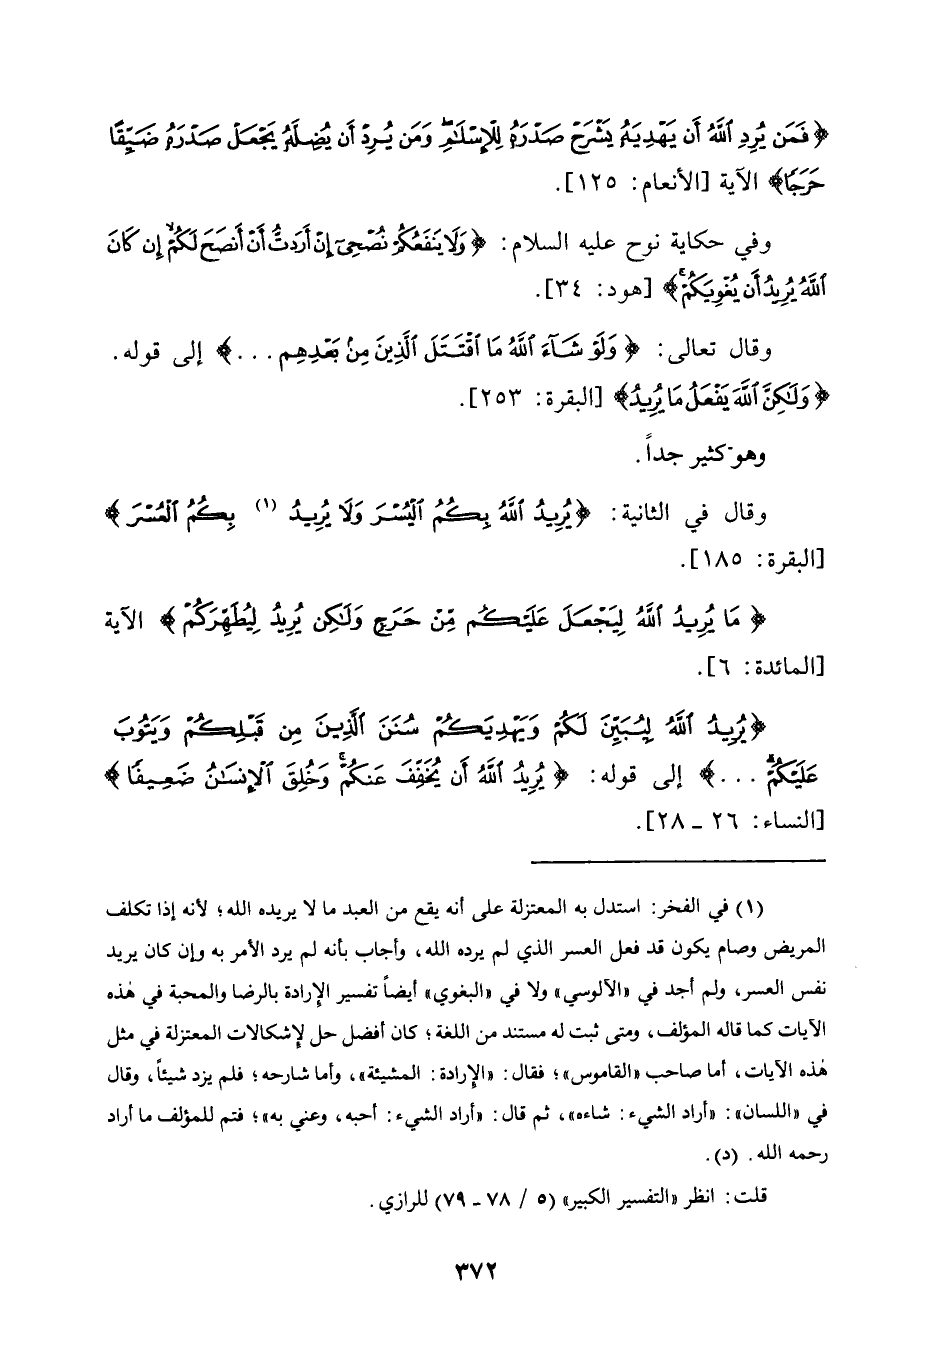 ﴿ فَمَن يُرِدِ ٱللَّهُ أَن يَهْدِيَهُۥ يَشْرَحْ صَدْرَهُۥ لِلْإِسْلَٰمِ ۖ وَمَن يُرِدْ أَن يُضِلَّهُۥ يَجْعَلْ صَدْرَهُۥ ضَيِّقًا
حَرَجًا﴾ الآية [الأنعام: ١٢٥].
وفي حكاية نوح عليه السلام: ﴿ وَلَا يَنفَعُكُمْ نُصْحِىٓ إِنْ أَرَدتُّ أَنْ أَنصَحَ لَكُمْ إِن كَانَ
ٱللَّهُ يُرِيدُ أَن يُغْوِيَكُمْ ۚ﴾ [هود: ٣٤].
وقال تعالى: ﴿ وَلَوْ شَآءَ ٱللَّهُ مَا ٱقْتَتَلَ ٱلَّذِينَ مِنۢ بَعْدِهِم ...﴾ إلى قوله.
﴿ وَلَٰكِنَّ ٱللَّهَ يَفْعَلُ مَا يُرِيدُ﴾ [البقرة: ٢٥٣].
وهو كثير جداً.
وقال في الثانية: ﴿يُرِيدُ ٱللَّهُ بِكُمُ ٱلْيُسْرَ وَلَا يُرِيدُ (١) بِكُمُ ٱلْعُسْرَ ﴾
[البقرة: ١٨٥].
﴿ مَا يُرِيدُ ٱللَّهُ لِيَجْعَلَ عَلَيْكُم مِّنْ حَرَجٍ وَلَٰكِن يُرِيدُ لِيُطَهِّرَكُمْ ﴾ الآية
[المائدة: ٦].
﴿يُرِيدُ ٱللَّهُ لِيُبَيِّنَ لَكُمْ وَيَهْدِيَكُمْ سُنَنَ ٱلَّذِينَ مِن قَبْلِكُمْ وَيَتُوبَ
عَلَيْكُمْ ۗ ...﴾ إلى قوله: ﴿ يُرِيدُ ٱللَّهُ أَن يُخَفِّفَ عَنكُمْ ۚ وَخُلِقَ ٱلْإِنسَٰنُ ضَعِيفًا ﴾
[النساء: ٢٦ ـ ٢٨].
(١) في الفخر: استدل به المعتزلة على أنه يقع من العبد ما لا يريده الله؛ لأنه إذا تكلف
المريض وصام يكون قد فعل العسر الذي لم يرده الله، وأجاب بأنه لم يرد الأمر به وإن كان يريد
نفس العسر، ولم أجد في «الآلوسي» ولا في «البغوي» أيضاً تفسير الإرادة بالرضا والمحبة في هٰذه
الآيات كما قاله المؤلف، ومتى ثبت له مستند من اللغة؛ كان أفضل حل لإشكالات المعتزلة في مثل
هٰذه الآيات، أما صاحب «القاموس»؛ فقال: «الإرادة: المشيئة»، وأما شارحه؛ فلم يزد شيئاً، وقال
في «اللسان»: «أراد الشيء: شاءه»، ثم قال: «أراد الشيء: أحبه، وعني به»؛ فتم للمؤلف ما أراد
رحمه الله. (د).
قلت: انظر «التفسير الكبير» (٥ / ٧٨ ـ ٧٩) للرازي.
٣٧٢